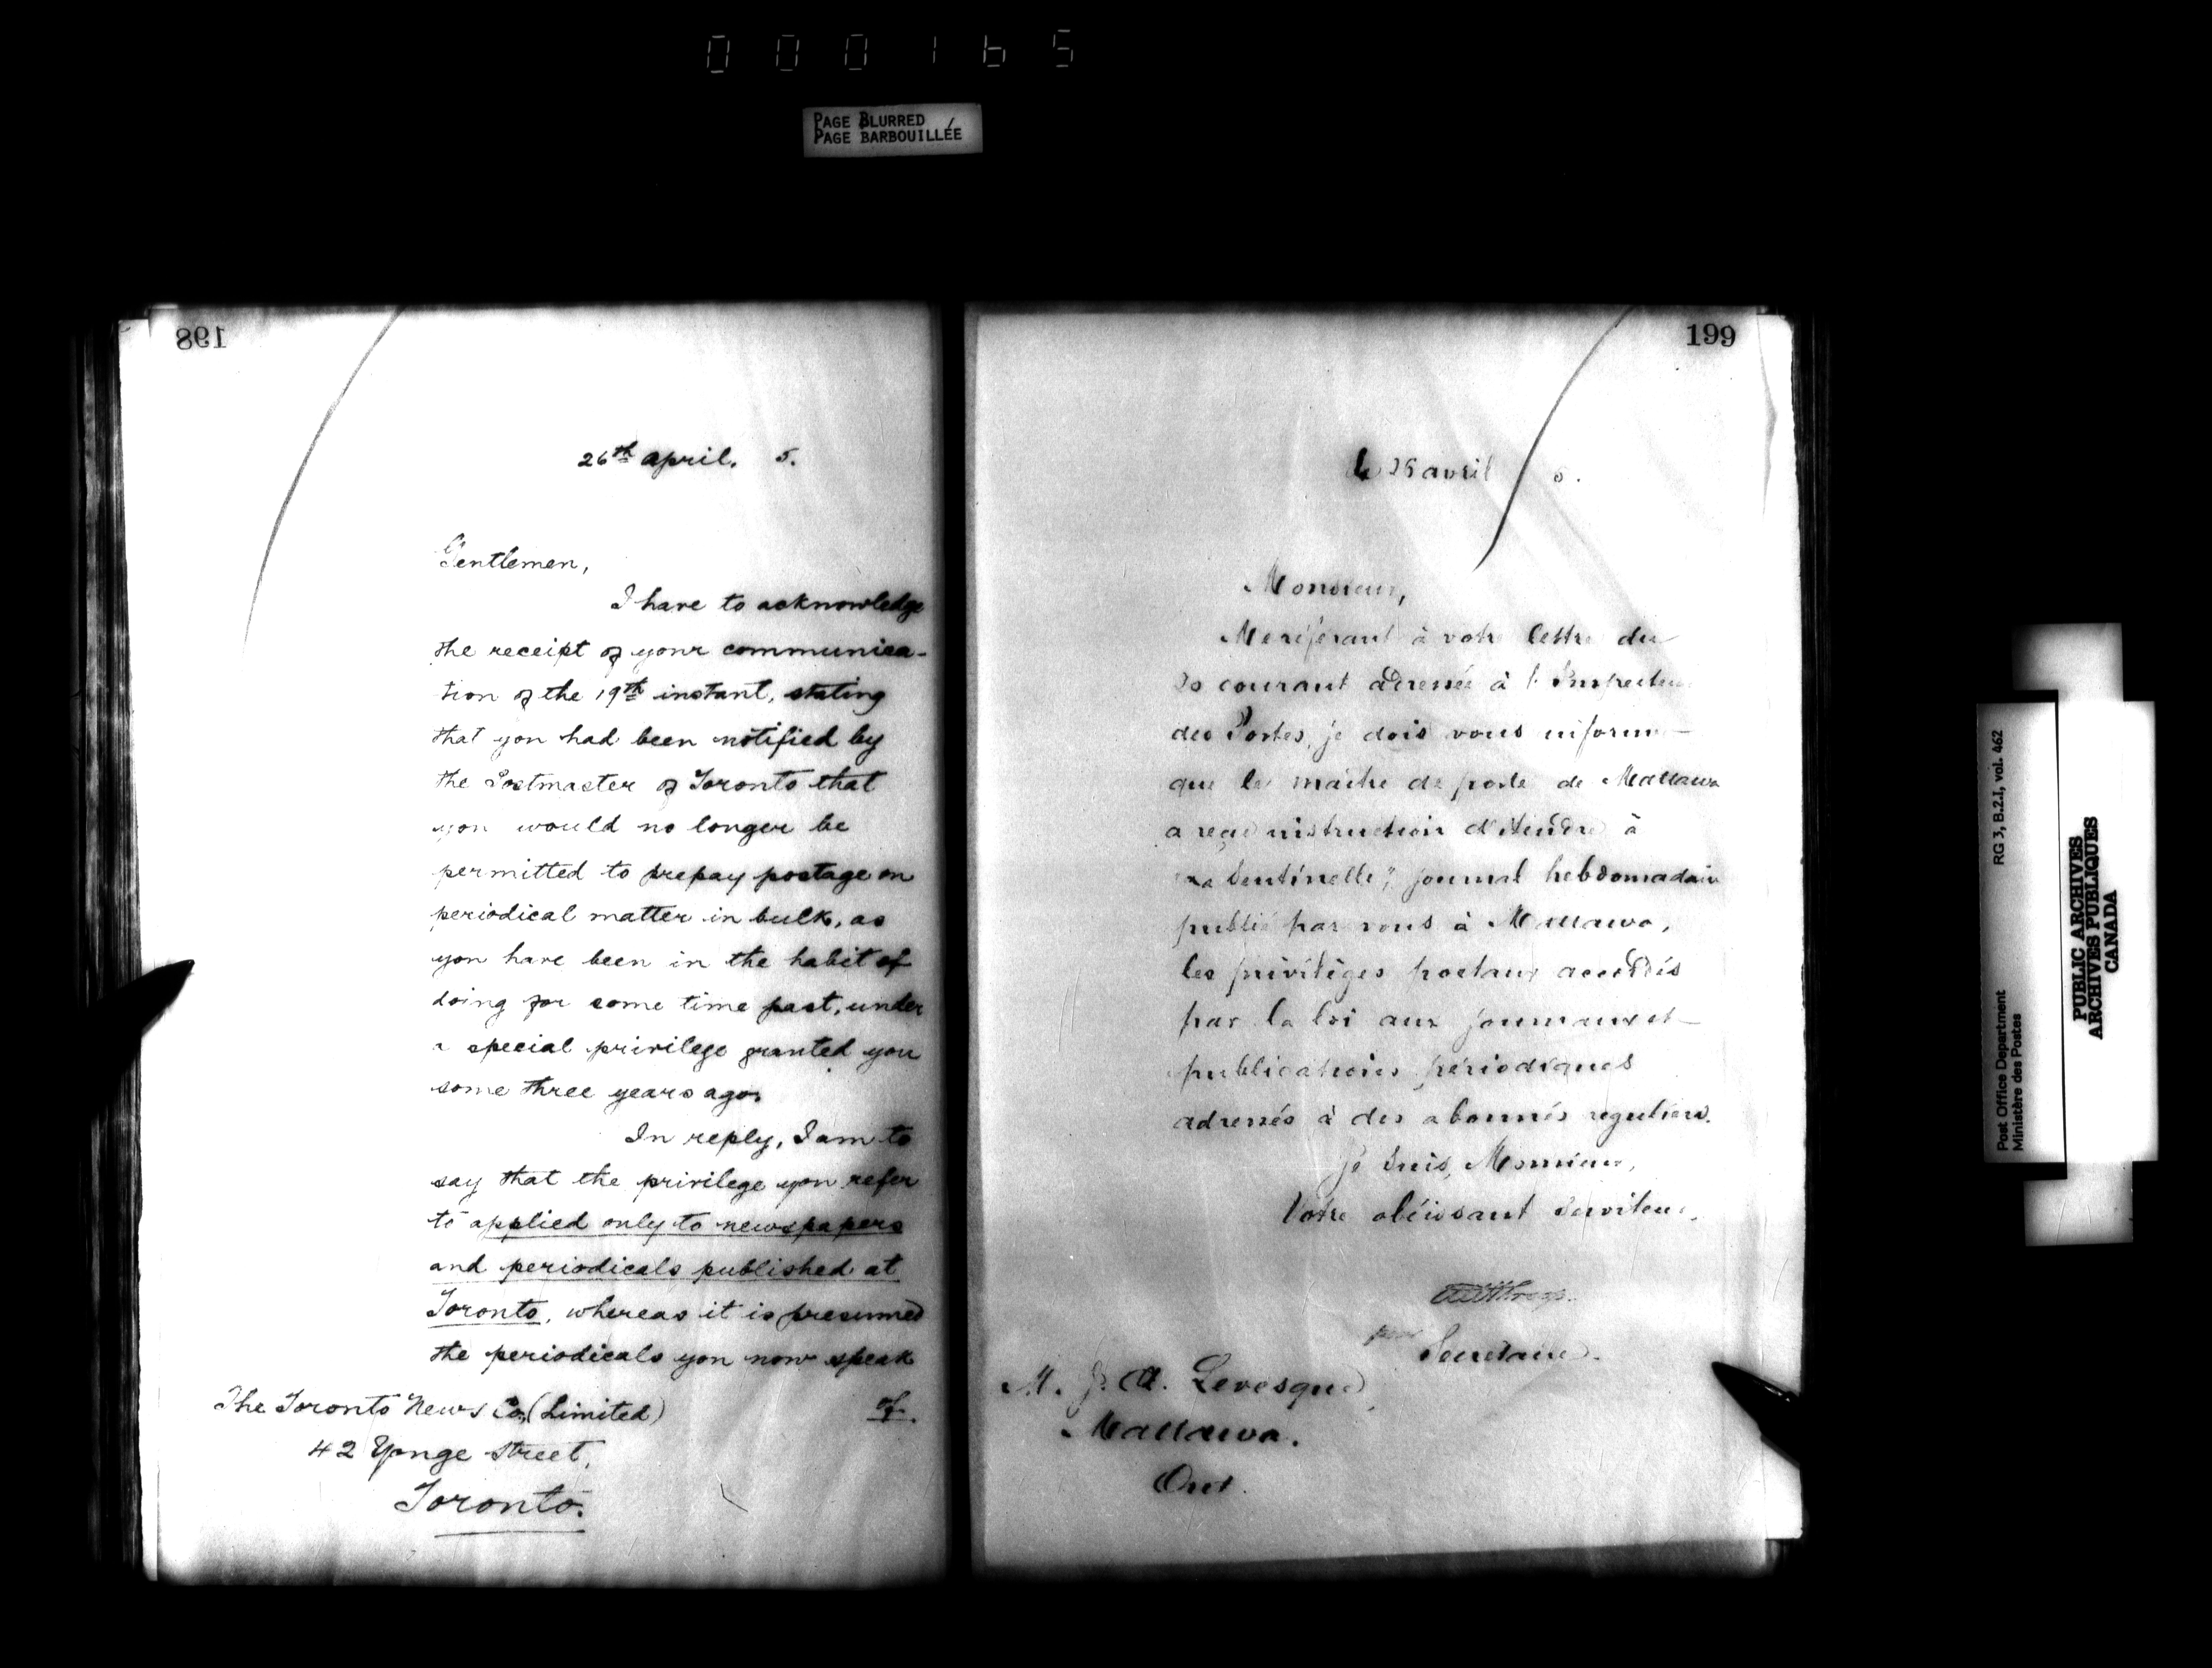 000165
PAGE BLURRED
PAGE BARBOUILLÉE
198
26th april. 5.
Gentlemen,
I have to acknowledge
the receipt of your communica-
tion of the 19th instant, stating
that you had been notified by
the Postmaster of Toronto that
you would no longer be
permitted to prepay postage on
periodical matter in bulk, as
you have been in the habit of
doing for some time past, under
a special privilege granted you
some three years ago.
In reply, I am to
say that the privilege you refer
to applied only to newspapers
and periodicals published at
Toronto, whereas it is presumed
the periodicals you now speak
of.
The Toronto News Co. (Limited)
42 Yonge Street,
Toronto.
199
le 26 avril 5.
Monsieur,
Me référant à votre lettre du
20 courant adressée à l'Inspecteur
des Postes, je dois vous informer
que le maître de poste de Mattawa
a reçu instruction d'étendre à
"La Sentinelle", journal hebdomadaire
publié par vous à Mattawa,
les privilèges postaux accordés
par la loi aux journaux et
publications périodiques
adressés à des abonnés reguliers.
je suis, Monsieur,
Votre obéissant serviteur,
pour Secrétaire.
M. J. A. Levesque,
Mattawa.
Ont.
Post Office Department RG 3, B.2.I, vol. 462
Ministère des Postes
PUBLIC ARCHIVES
ARCHIVES PUBLIQUES
CANADA